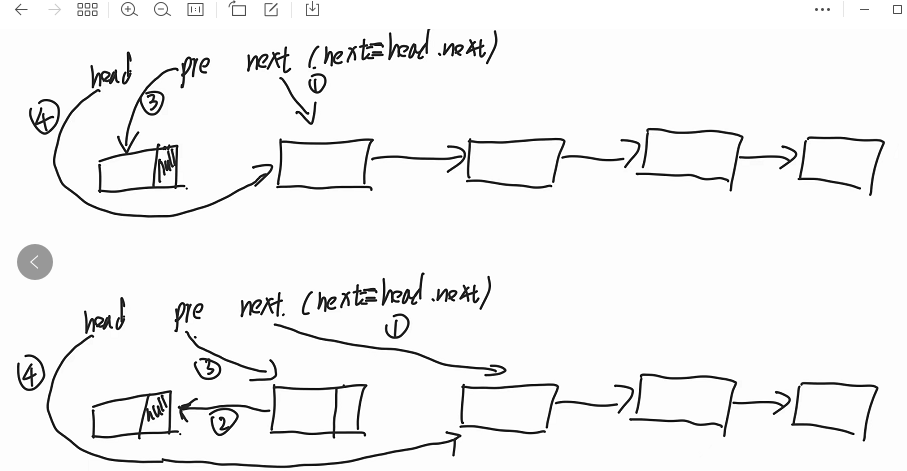 head pre next (next=head.next)
①
③
④
null
head pre next (next=head.next)
①
③
④
null
②